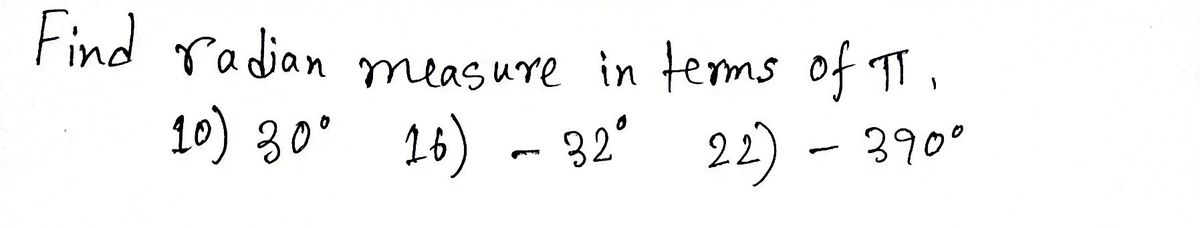 Find radian measure in terms of π.
10) 30° 16) - 32° 22) - 390°